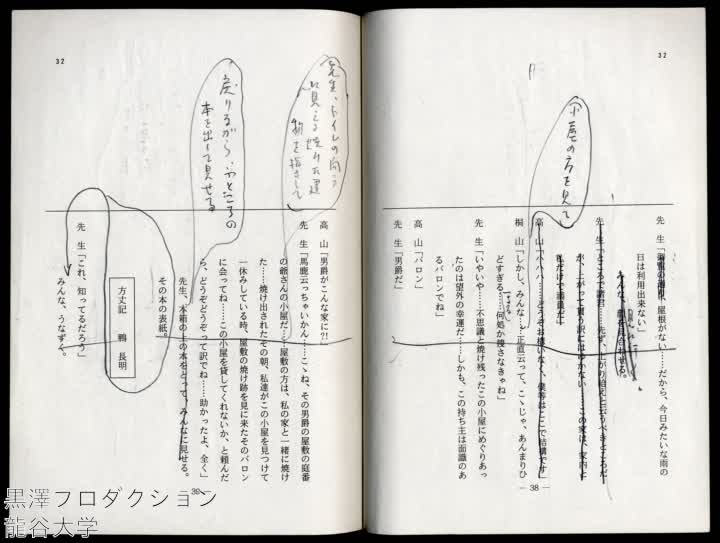 32
小屋の方を見て
先　生「雨天の通用、屋根がない……だから、今日みたいな雨の
日は利用出来ない」
みんな、顔を見合わせる。
先　生「ところで諸君……先ず、上がり給えと云うべきところだ
が、上がって貰う訳にはゆかない……この家は、家内と
私だけで満員だ」
高　山「ハハハ……どうぞお構いなく、僕等はここで結構です」
桐　山「しかし、みんな……正直云って、こゝじゃ、あんまりひ
どすぎる……何処か捜さなきゃね」
先　生「いやいや……不思議と焼け残ったこの小屋にめぐりあっ
たのは望外の幸運だ……しかも、この持ち主は面識のあ
るバロンでね」
高　山「バロン」
先　生「男爵だ」
― 38 ―
32
先生、トイレの向う
に見える焼けた建
物を指さして
戻りながら、ふところの
本を出して見せる
高　山「男爵がこんな家に?!
先　生「馬鹿云っちゃいかん……こゝね、その男爵の屋敷の庭番
の爺さんの小屋だ……屋敷の方は、私の家と一緒に焼け
た……焼け出されたその朝、私達がこの小屋を見つけて
一休みしている時、屋敷の焼け跡を見に来たそのバロン
に会ってね……この小屋を貸してくれないか、と頼んだ
ら、どうぞどうぞって訳でね……助かったよ、全く」
先生、本箱の上の本をとって、みんなに見せる。
その本の表紙。
方丈記　鴨　長明
先　生「これ、知ってるだろう」
みんな、うなずく。
39
黒澤プロダクション
龍谷大学